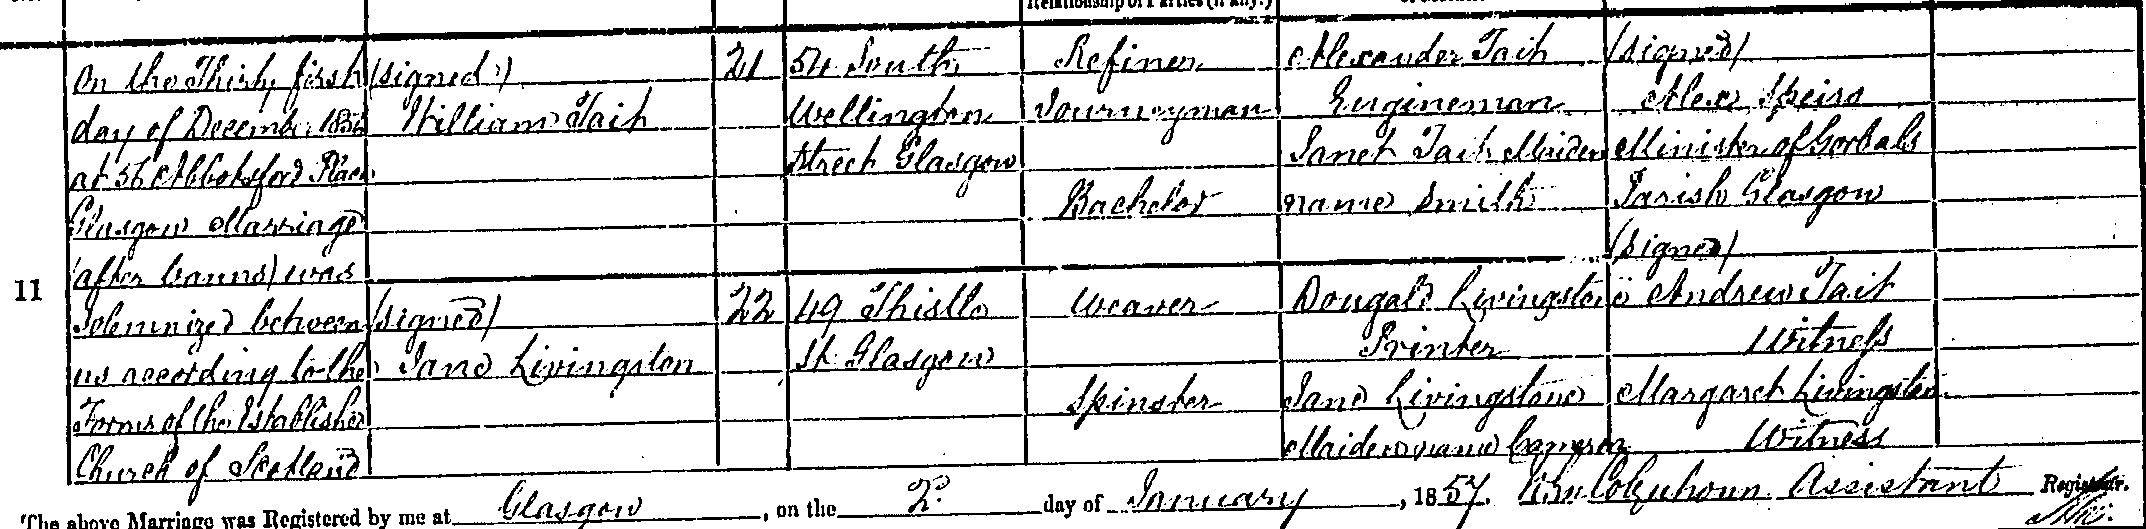 Relationship of Parties (if any.)
On the Thirty first
day of December 1856
at 56 Abbotsford Place
Glasgow Marriage
(after banns) was
Solemnized between
us according to the
Forms of the Established
Church of Scotland
11
(signed)
William Tait
(signed)
Jane Livingston
21
22
54 South
Wellington
Street Glasgow
49 Thistle
St. Glasgow
Refiner
Journeyman
Bachelor
Weaver
Spinster
Alexander Tait
Engineman
Janet Tait Maiden
name Smith
Dougald Livingstone
Printer
Jane Livingstone
Maiden name Cameron
(signed)
Alexr Speirs
Minister of Gorbals
Parish Glasgow
(signed)
Andrew Tait
Witness
Margaret Livingston
Witness
The above Marriage was Registered by me at Glasgow, on the 2. day of January, 1857. Colquhoun Assistant Registrar.